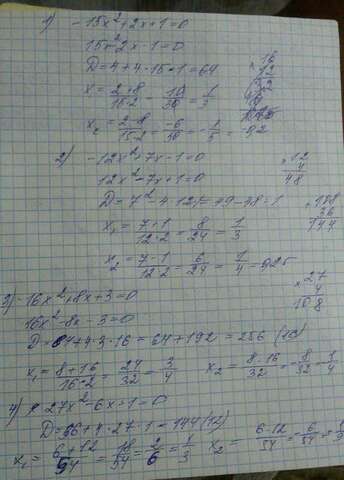 1) -15x²+2x+1=0
15x²-2x-1=0
D=4+4·15·1=64
x=2+8/15·2=10/30=1/3
x₂=2-8/15·2=-6/30=-1/5=-0,2
2) -12x²+7x-1=0
12x²-7x+1=0
D=7²-4·12·1=49-48=1
x₁=7+1/12·2=8/24=1/3
x₂=7-1/12·2=6/24=1/4=0,25
12
4
48
3) -16x²+8x+3=0
16x²-8x-3=0
D=64+4·3·16=64+192=256 (16)
x₁=8+16/16·2=24/32=3/4 x₂=8-16/32=-8/32=-1/4
27
4
108
108
36
144
4) 27x²-6x-1=0
D=36+4·27·1=144(12)
x₁=6+12/54=18/54=2/6=1/3 x₂=6-12/54=-6/54=-1/9